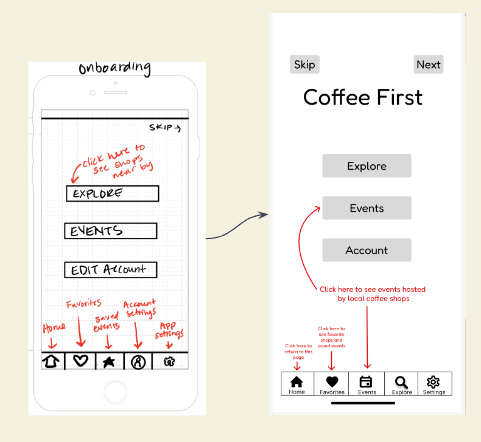 onboarding
SKIP→
click here to
see shops
near by
EXPLORE
EVENTS
EDIT Account
Home
Favorites
saved
events
Account
settings
APP
settings
Skip
Next
Coffee First
Explore
Events
Account
Click here to see events hosted
by local coffee shops
Click here to
return to this
page
Click here to
see favorite
shops and
saved events
Home
Favorites
Events
Explore
Settings